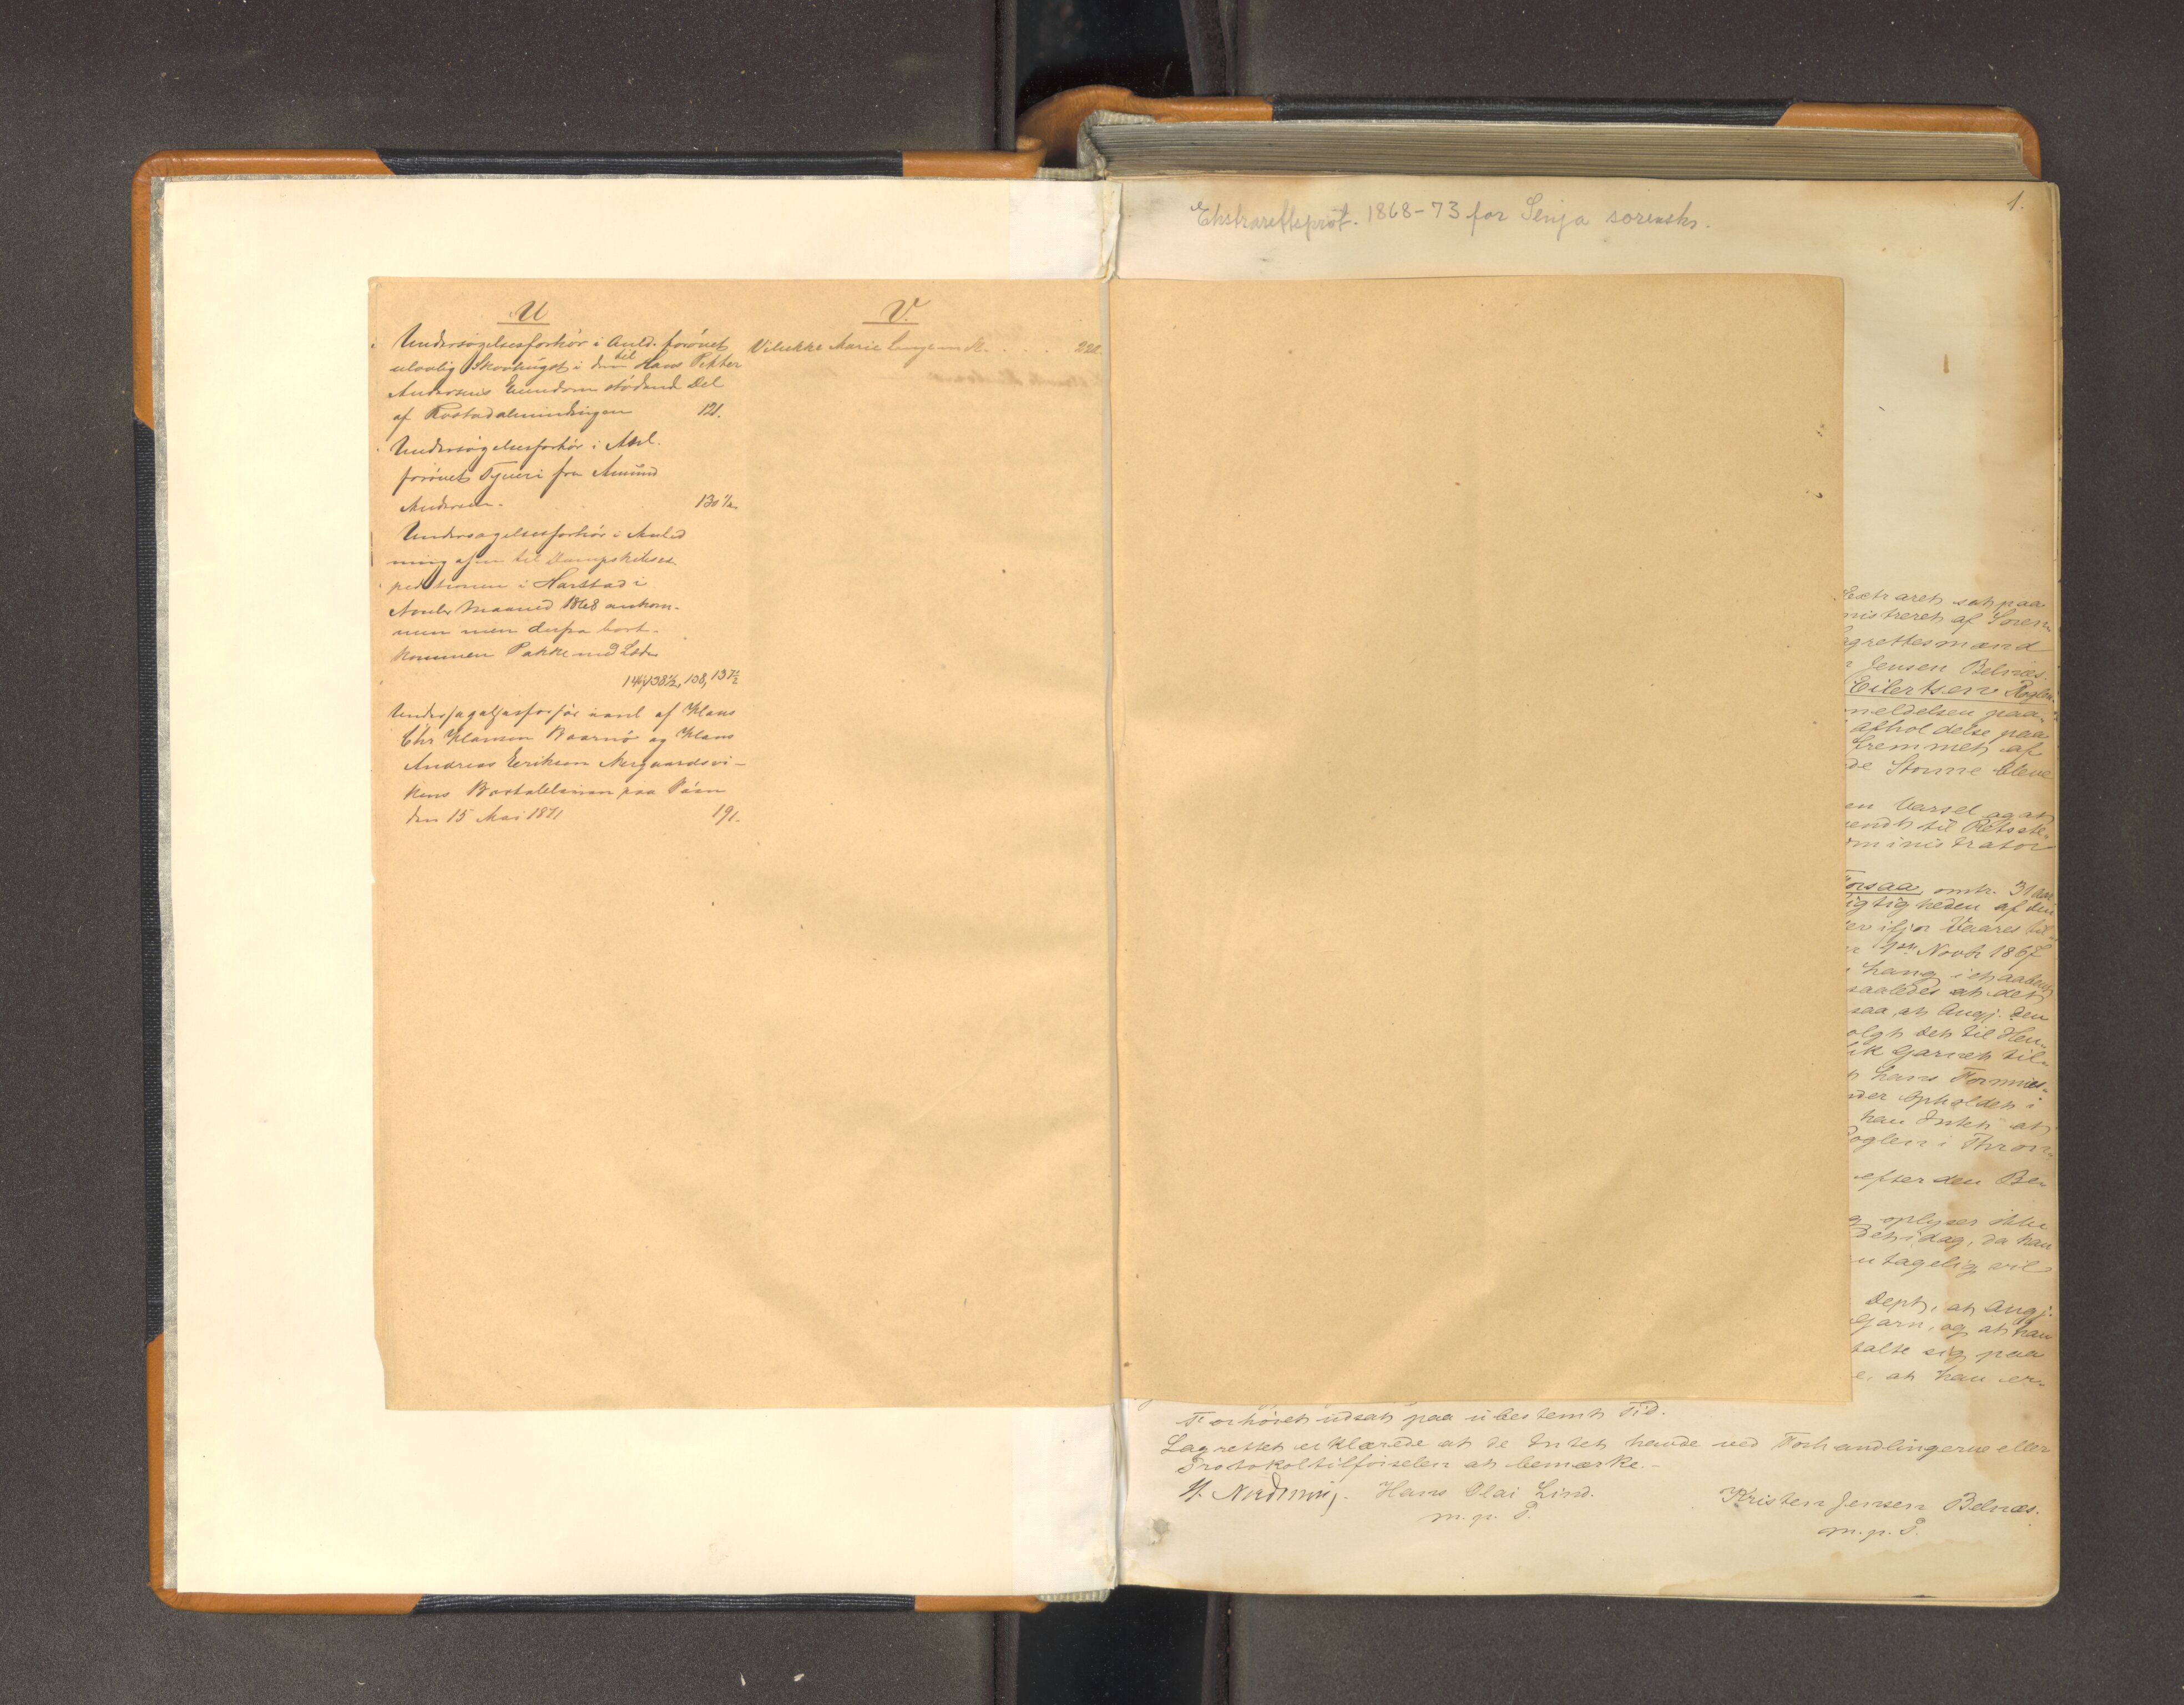 U
Undersøgelsesforhør i Anld. forøvet
ulovlig Skovhugst i den til Hans Petter
Andersens Eiendom stødende Del
af Rostadalmindingen 121.
Undersøgelsesforhør i Anl.
forøvet Tyveri fra Amund
Andersen. 130 1/2
Undersøgelsesforhør i Anled
ning af en til Dampskibsex
peditionen i Harstad i
Novbr Maaned 1868 ankom-
men men derfra bort-
kommen Pakke med Læder
146, 138 1/2, 108, 137 1/2
Undersøgelsesforhør i anl af Hans
Chr Hansen Baarnø og Hans
Andreas Eriksen Nergaardsvi-
kens Bortblivelse paa Søen
den 15 Mai 1871 191.
V.
Marie 221
Ekstrarettsprot. 1868-73 for Senja sorensk.
1.
Extraret sat paa
nistreret af Soren
agrettesmænd
Jensen Belnæs.
Eilertsen Roglen
meldelsen paa
afholdelse paa
fremmet af
de Storme bleve
en Varsel og at
endt til Retsste
ministrator
Forsaa, omtr. 31 Aar
igtigheden af den
er ifjor Vaares til
1ste Novbr 1867
hang i et aabent
saaledes at det
saa, at Angj. den
olgt det til Hen
ik Garnet til
hans Formues
der Opholdet i
han Intet at
oglen i Thron
efter den Be
oplyser ikke
det idag, da han
ntagelig vil
Dept, at Angj.
Garn, og at han
talte sig paa
e, at han er
Forhøret udsat paa ubestemt Tid.
Lagrettet erklærede at de Intet havde ved Forhandlingerne eller
Protokoltilførselen at bemærke.-
Hans Olai Lind. Kristen Jensen Belnæs.
m. p. P. m. p. P.